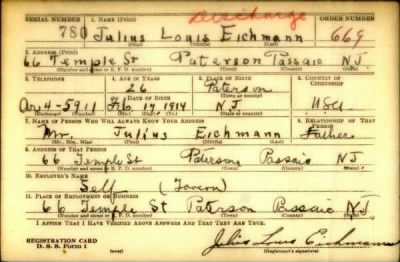 SERIAL NUMBER 1. NAME (Print) Discharge ORDER NUMBER
780 Julius Louis Eichmann 669
2. ADDRESS (Print)
66 Temple St Paterson Passaic NJ
(Number and street or R. F. D. number) (Town) (County) (State)
3. TELEPHONE 4. AGE IN YEARS 5. PLACE OF BIRTH 6. COUNTRY OF CITIZENSHIP
26 Paterson
DATE OF BIRTH (Town or county)
4-5911 Feb 19 1914 NJ USA
7. NAME OF PERSON WHO WILL ALWAYS KNOW YOUR ADDRESS 8. RELATIONSHIP OF THAT PERSON
Mr. Julius Eichmann Father
(Mr., Mrs., Miss) (First) (Middle) (Last)
9. ADDRESS OF THAT PERSON
66 Temple St Paterson Passaic NJ
(Number and street or R. F. D. number) (Town) (County) (State)
10. EMPLOYER'S NAME
Self (Tavern)
11. PLACE OF EMPLOYMENT OR BUSINESS
66 Temple St Paterson Passaic NJ
(Number and street or R. F. D. number) (Town) (County) (State)
I AFFIRM THAT I HAVE VERIFIED ABOVE ANSWERS AND THAT THEY ARE TRUE.
REGISTRATION CARD
D. S. S. Form 1 (over) Julius Louis Eichmann
(Registrant's signature)